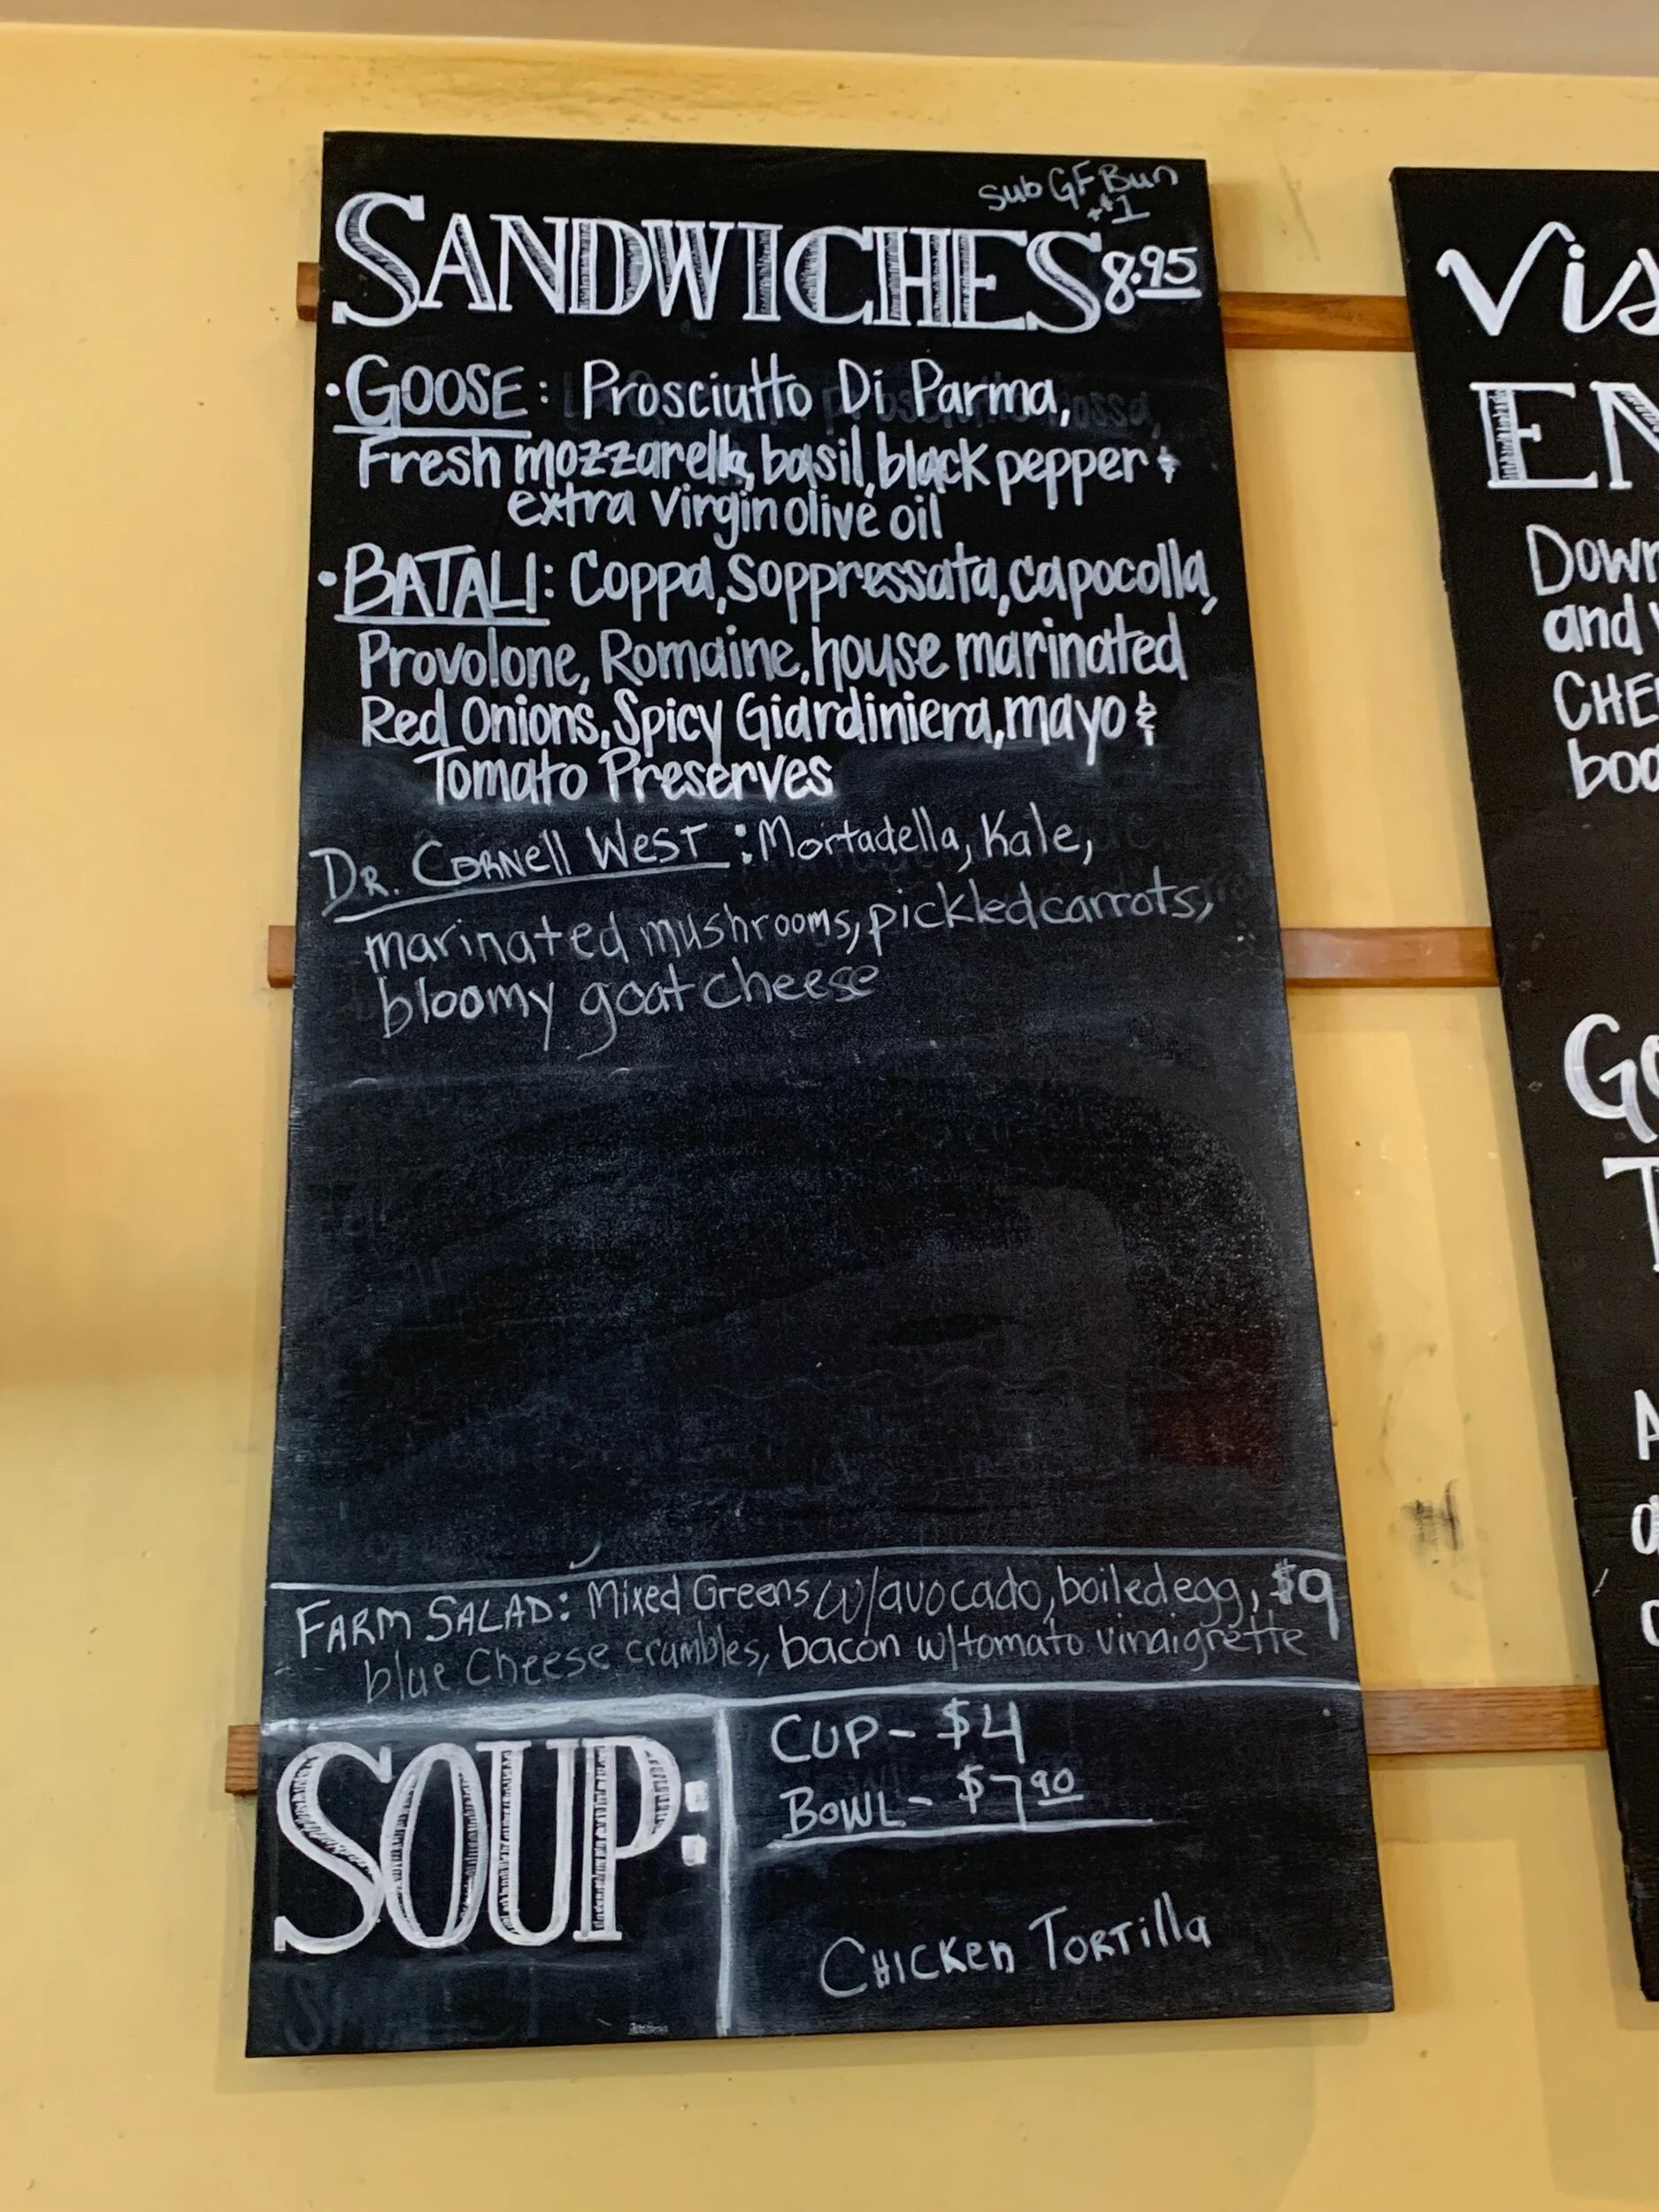 sub GF Bun
+$1
SANDWICHES 8.95
• GOOSE: Prosciutto Di Parma,
Fresh mozzarella, basil, black pepper &
extra virgin olive oil
• BATALI: Coppa, Soppressata, capocolla,
Provolone, Romaine, house marinated
Red Onions, Spicy Giardiniera, mayo &
Tomato Preserves
DR. CORNell WEST: Mortadella, Kale,
marinated mushrooms, pickled carrots,
bloomy goat cheese
FARM SALAD: Mixed Greens w/avocado, boiled egg, $9
blue Cheese crumbles, bacon w/tomato vinaigrette
SOUP:
CUP - $4
BOWL - $7.90
CHICKEN TORTilla
Vis
EN
Down
and
CHE
boo
Go
T
A